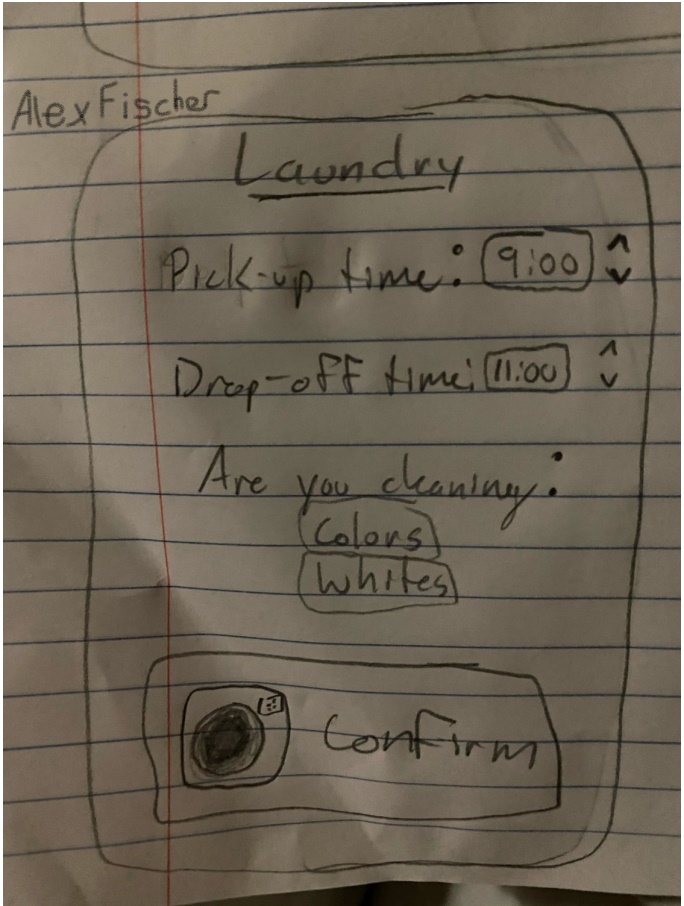 Alex Fischer
Laundry
Pick-up time: 9:00
Drop-off time: 11:00
Are you cleaning:
Colors
Whites
Confirm